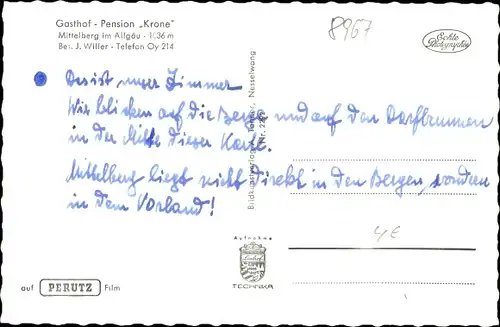 Gasthof - Pension „Krone"
Mittelberg im Allgäu - 1036 m
Bes. J. Willer - Telefon Oy 214
8967
Echte Photographie
Das ist unser Zimmer
Wir blicken auf die Berge und auf den Dorfbrunnen
in der Mitte dieser Karte.
Mittelberg liegt nicht direkt in den Bergen, sondern
in dem Vorland!
Nesselwang
Aufnahme
TECHNIKA
4€
auf PERUTZ Film